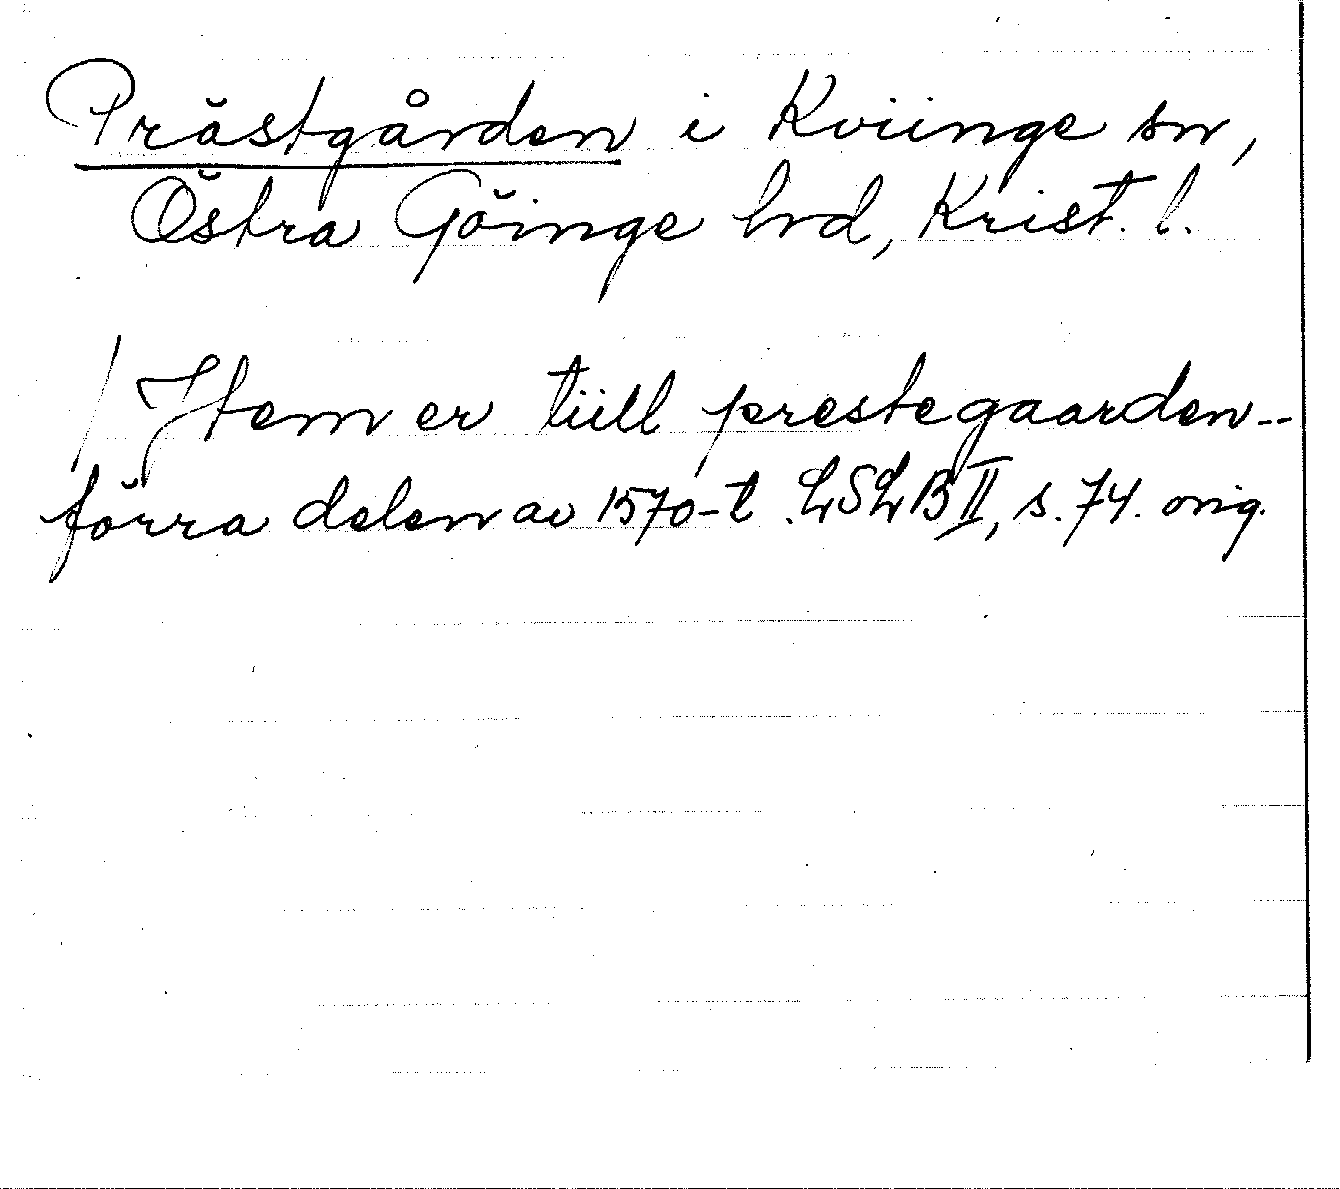 Prästgården i Kviinge sn,
Östra Göinge hrd, Krist. l.
/ Item er tiill prestegaarden--
förra delen av 1570-t. LSLB II, s. 74. orig.